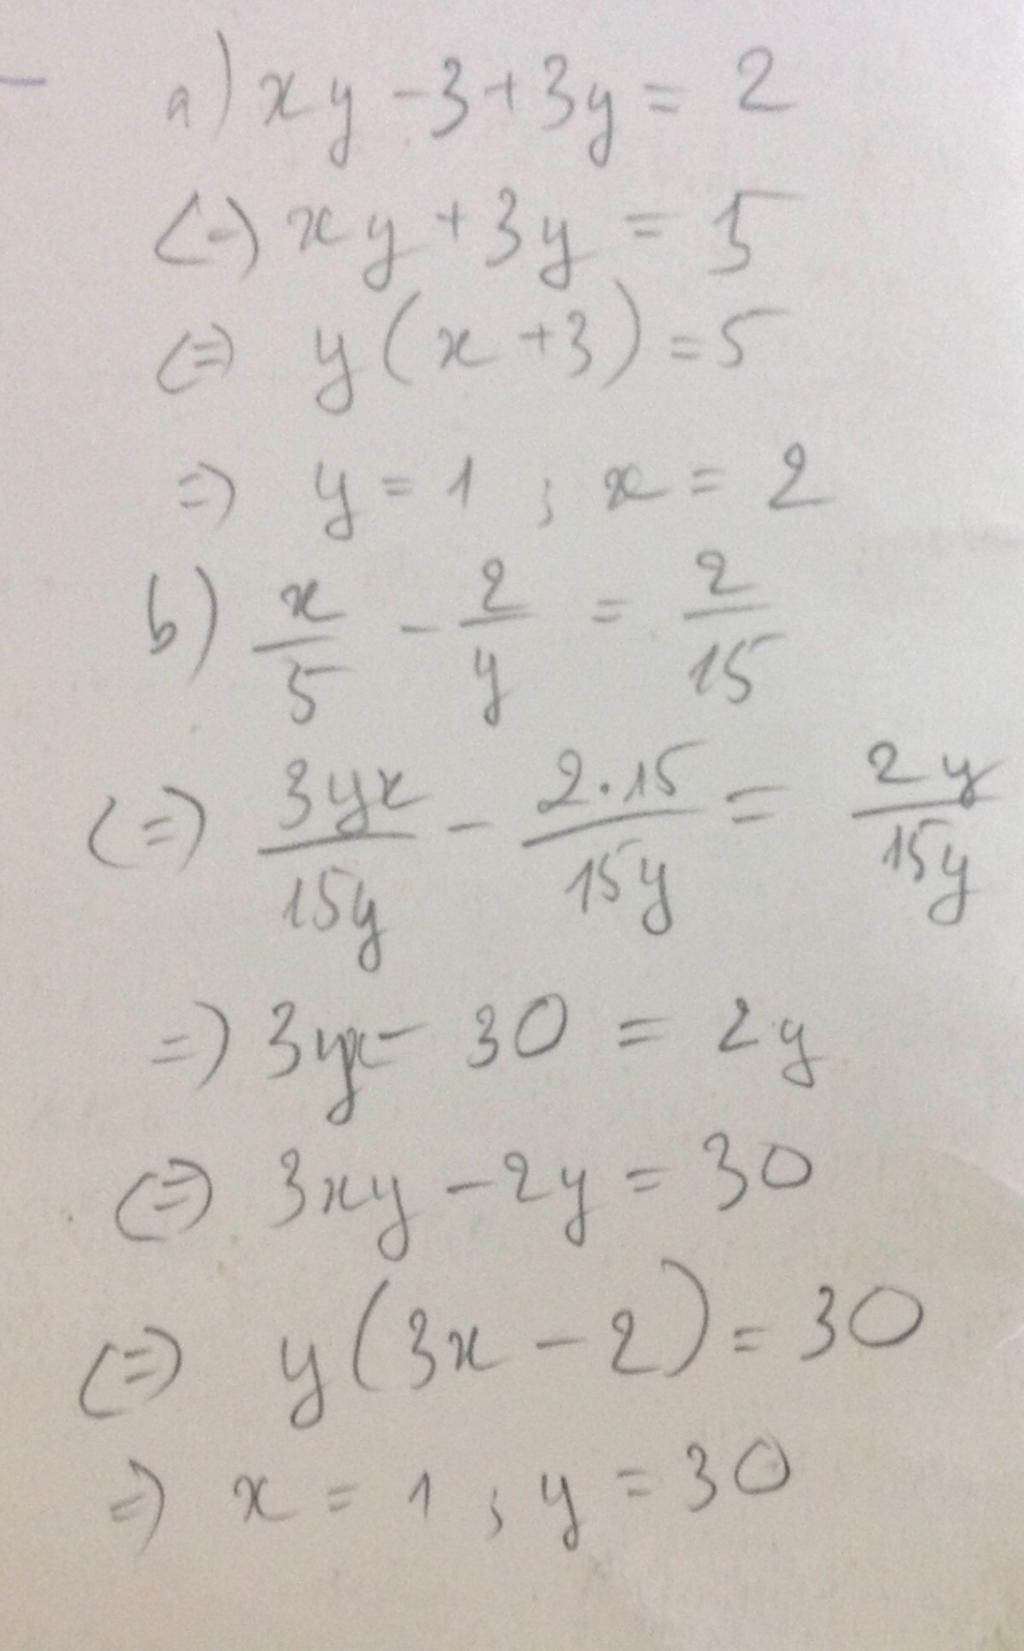 a) xy - 3 + 3y = 2
(=) xy + 3y = 5
(=) y(x + 3) = 5
=) y = 1 ; x = 2
b) x/5 - 2/y = 2/15
(=) 3yx/15y - 2.15/15y = 2y/15y
=) 3yx - 30 = 2y
(=) 3xy - 2y = 30
(=) y(3x - 2) = 30
=) x = 1 ; y = 30